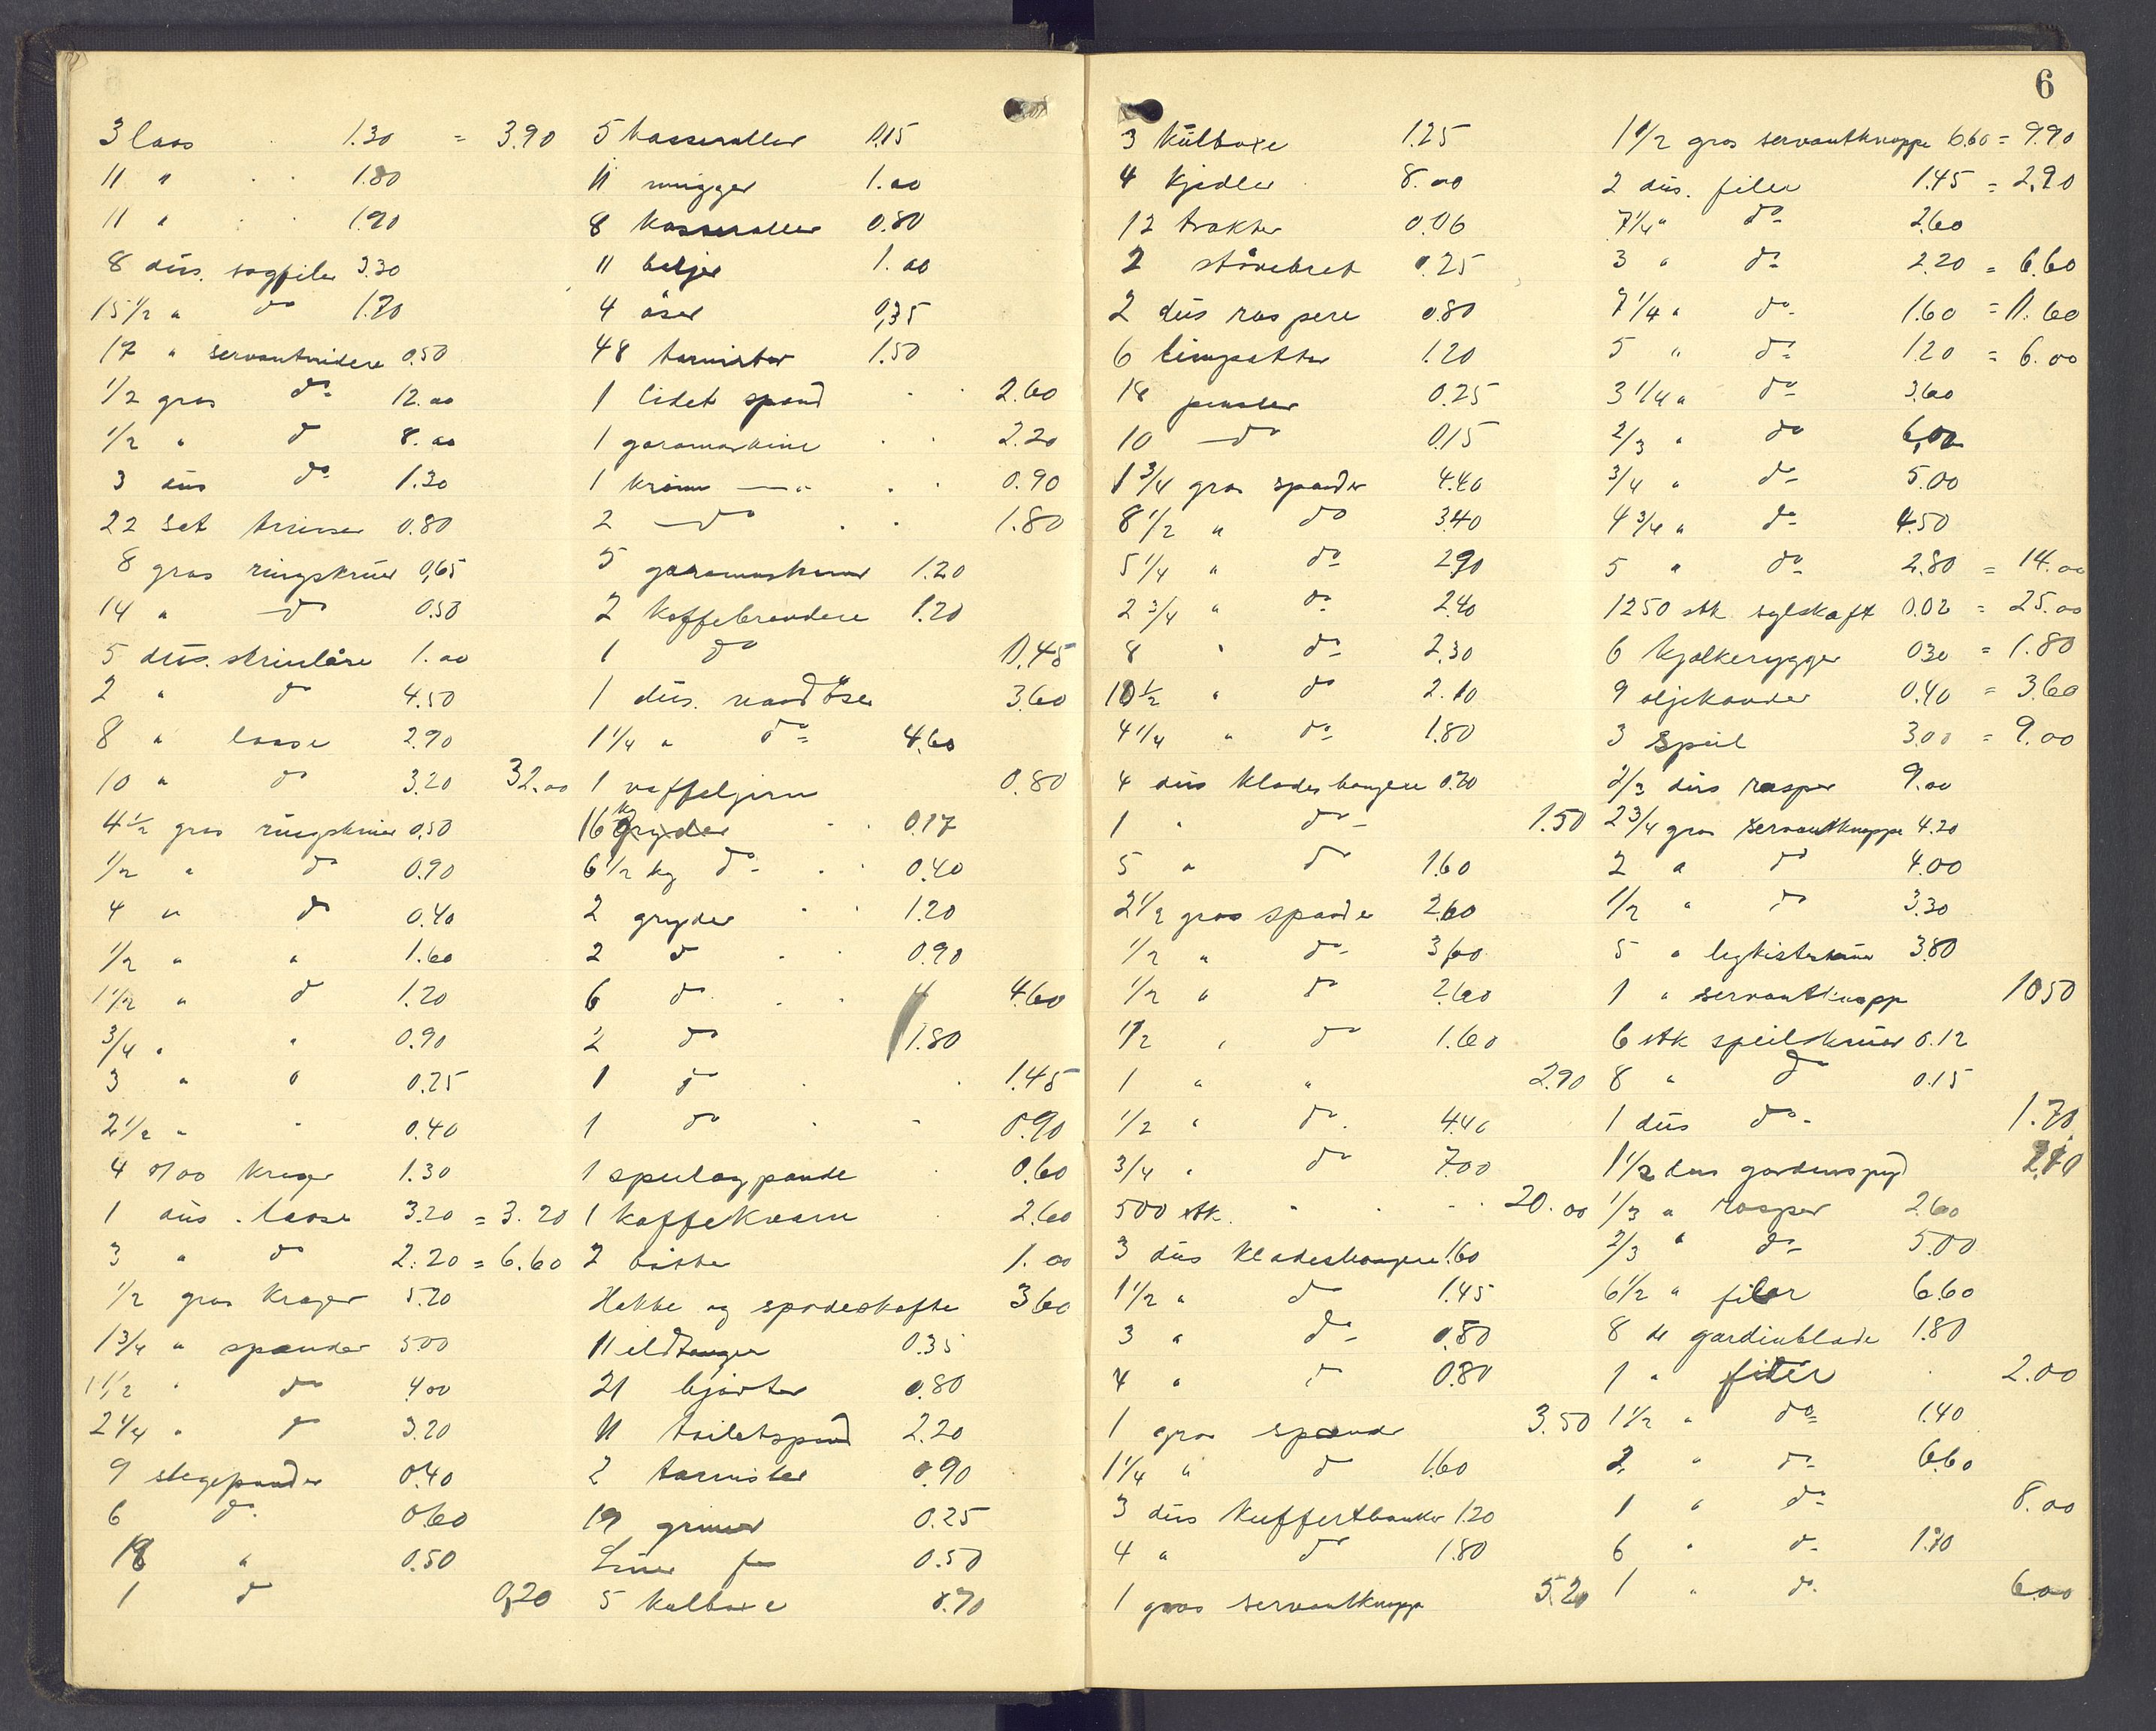 3 laas 1.30 = 3.90
11 " 1.80
11 " 1.90
8 düs. sagfiler 3.30
15 1/2 " do 1.70
17 " servantvidere 0.50
1/2 gros do 12.00
1/2 " do 8.00
3 düs do 1.30
22 set trinser 0.80
8 gros ringskrüer 0,65
14 " do 0.50
5 düs. skrinlåse 1.00
2 " do 4.50
8 " laase 2.90
10 " do 3.20 32.00
4 1/2 gros ringskrüer 0.50
1/2 " do 0.90
4 " do 0.40
1/2 " " 1.60
1 1/2 " do 1.20
3/4 " " 0.90
3 " " 0.25
2 1/2 " " 0.40
4 0/00 kroger 1.30
1 düs. laase 3.20 = 3.20
3 " do 2.20 = 6.60
1/2 gros kroger 5.20
1 3/4 " spander 5.00
1 1/2 " do 4.00
2 1/4 " do 3.20
9 stegepander 0.40
6 do. 0.60
18 " 0.50
1 do 0,20
5 kasseroller 1.15
11 mugger 1.00
8 kasseroller 0.80
11 beljer 1.00
4 öser 0,35
48 tarmister 1.50
1 lidet spand 2.60
1 garamaskine 2.20
1 2 do 0.90
2 do 1.80
5 garamaskiner 1.20
2 Kaffebrendere 1.20
1 do 1,45
1 düs. vandöser 3.60
1 1/4 " do 4,60
1 vaffeljern 0.80
16 kg gryder 0.17
6 1/2 kg do 0.40
2 gryder 1.20
2 do 0.90
6 do 4.60
2 do 1.80
1 do 1.45
1 do 0.90
1 speilagpande 0.60
1 kaffekvarn 2.60
2 bötter 1.00
Hakke og spadeskafte 3.60
11 ildtanger 0.35
21 0.80
11 toiletspand 2.20
2 tarmister 0.90
19 0.25
0.50
5 kulboxe 0.70
6
3 külboxe 1.25
4 kjedler 8.00
12 trakter 0.06
2 stövebret 0.25
2 düs raspere 0.80
6 limpotter 1.20
18 pensler 0.25
10 do 0.15
1 3/4 gros spander 4.40
8 1/2 " do 3.40
5 1/4 " do 2.90
2 3/4 " do 2.40
8 " do 2.30
10 1/2 " do 2.10
4 1/4 " do 1.80
4 düs kladeshengere 0.70
1 " do 1.50
5 " do 1.60
2 1/2 gros spander 2.60
1/2 " do 3.60
1/2 " do 2.60
1/2 " do 1.60
1 " " 2.90
1/2 " do 4.40
3/4 " do 7.00
500 stk. 20.00
3 düs kladeshengere 1.60
1 1/2 " do 1.45
3 " do 0.80
4 " do 0.80
1 gros spender 3.50
1 1/4 " do 1.60
3 düs kuffertbanker 1.20
4 " do 1.80
1 gros servantknopp 5.20
1 1/2 gros servantknoppe 6.60 = 9.90
2 düs. filer 1.45 = 2,90
7 1/4 " do 2.60
3 " do 2.20 = 6.60
7 1/4 " do 1.60 = 11.60
5 " do 1.20 = 6.00
3 1/4 " do 3.60
2/3 " do 6,00
3/4 " do 5.00
4 3/4 " do 4.50
5 " do 2.80 = 14.00
1250 stk sylskaft 0.02 = 25.00
6 kjelkerygger 0.30 = 1.80
9 oljekander 0.40 = 3.60
3 Speil 3.00 = 9.00
2/3 düs rasper 9.00
2 3/4 gros servantknoppe 4.20
2 " do 4.00
1/2 " do 3.30
5 " legkisteskrüer 3.80
1 " servantknopp 10.50
6 stk speilskrüer 0.12
8 " do 0.15
1 düs do 1.70
1 1/2 düs gardinspyd
1/3 " rasper 2.60
2/3 " do 5.00
6 1/2 " filer 6.60
8 " gardinblade 1.80
1 " filer 2.00
1 1/2 " do 1.40
2 " do 6.60
1 " do 8.00
6 " do 1.70
1 " do 6.00